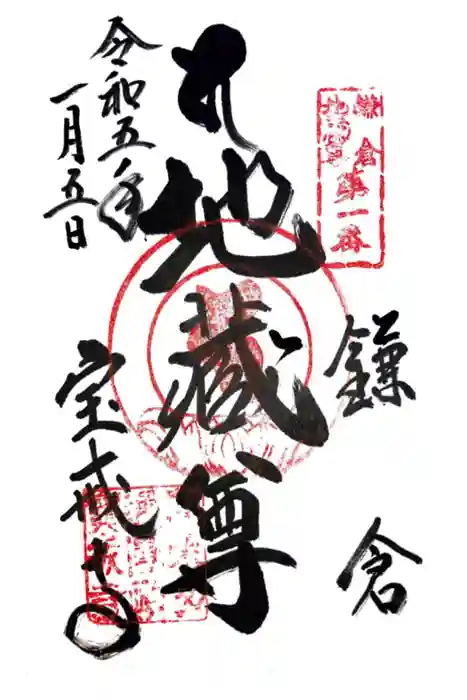 鎌倉
地蔵尊
鎌倉
第一番
地蔵尊
令和五年
一月五日
宝戒寺